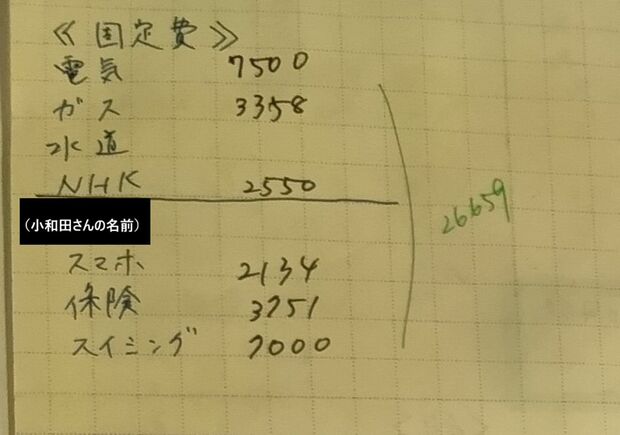 ≪固定費≫
電気 7500
ガス 3358
水道
NHK 2550
26659
（小和田さんの名前）
スマホ 2134
保険 3751
スイミング 7000